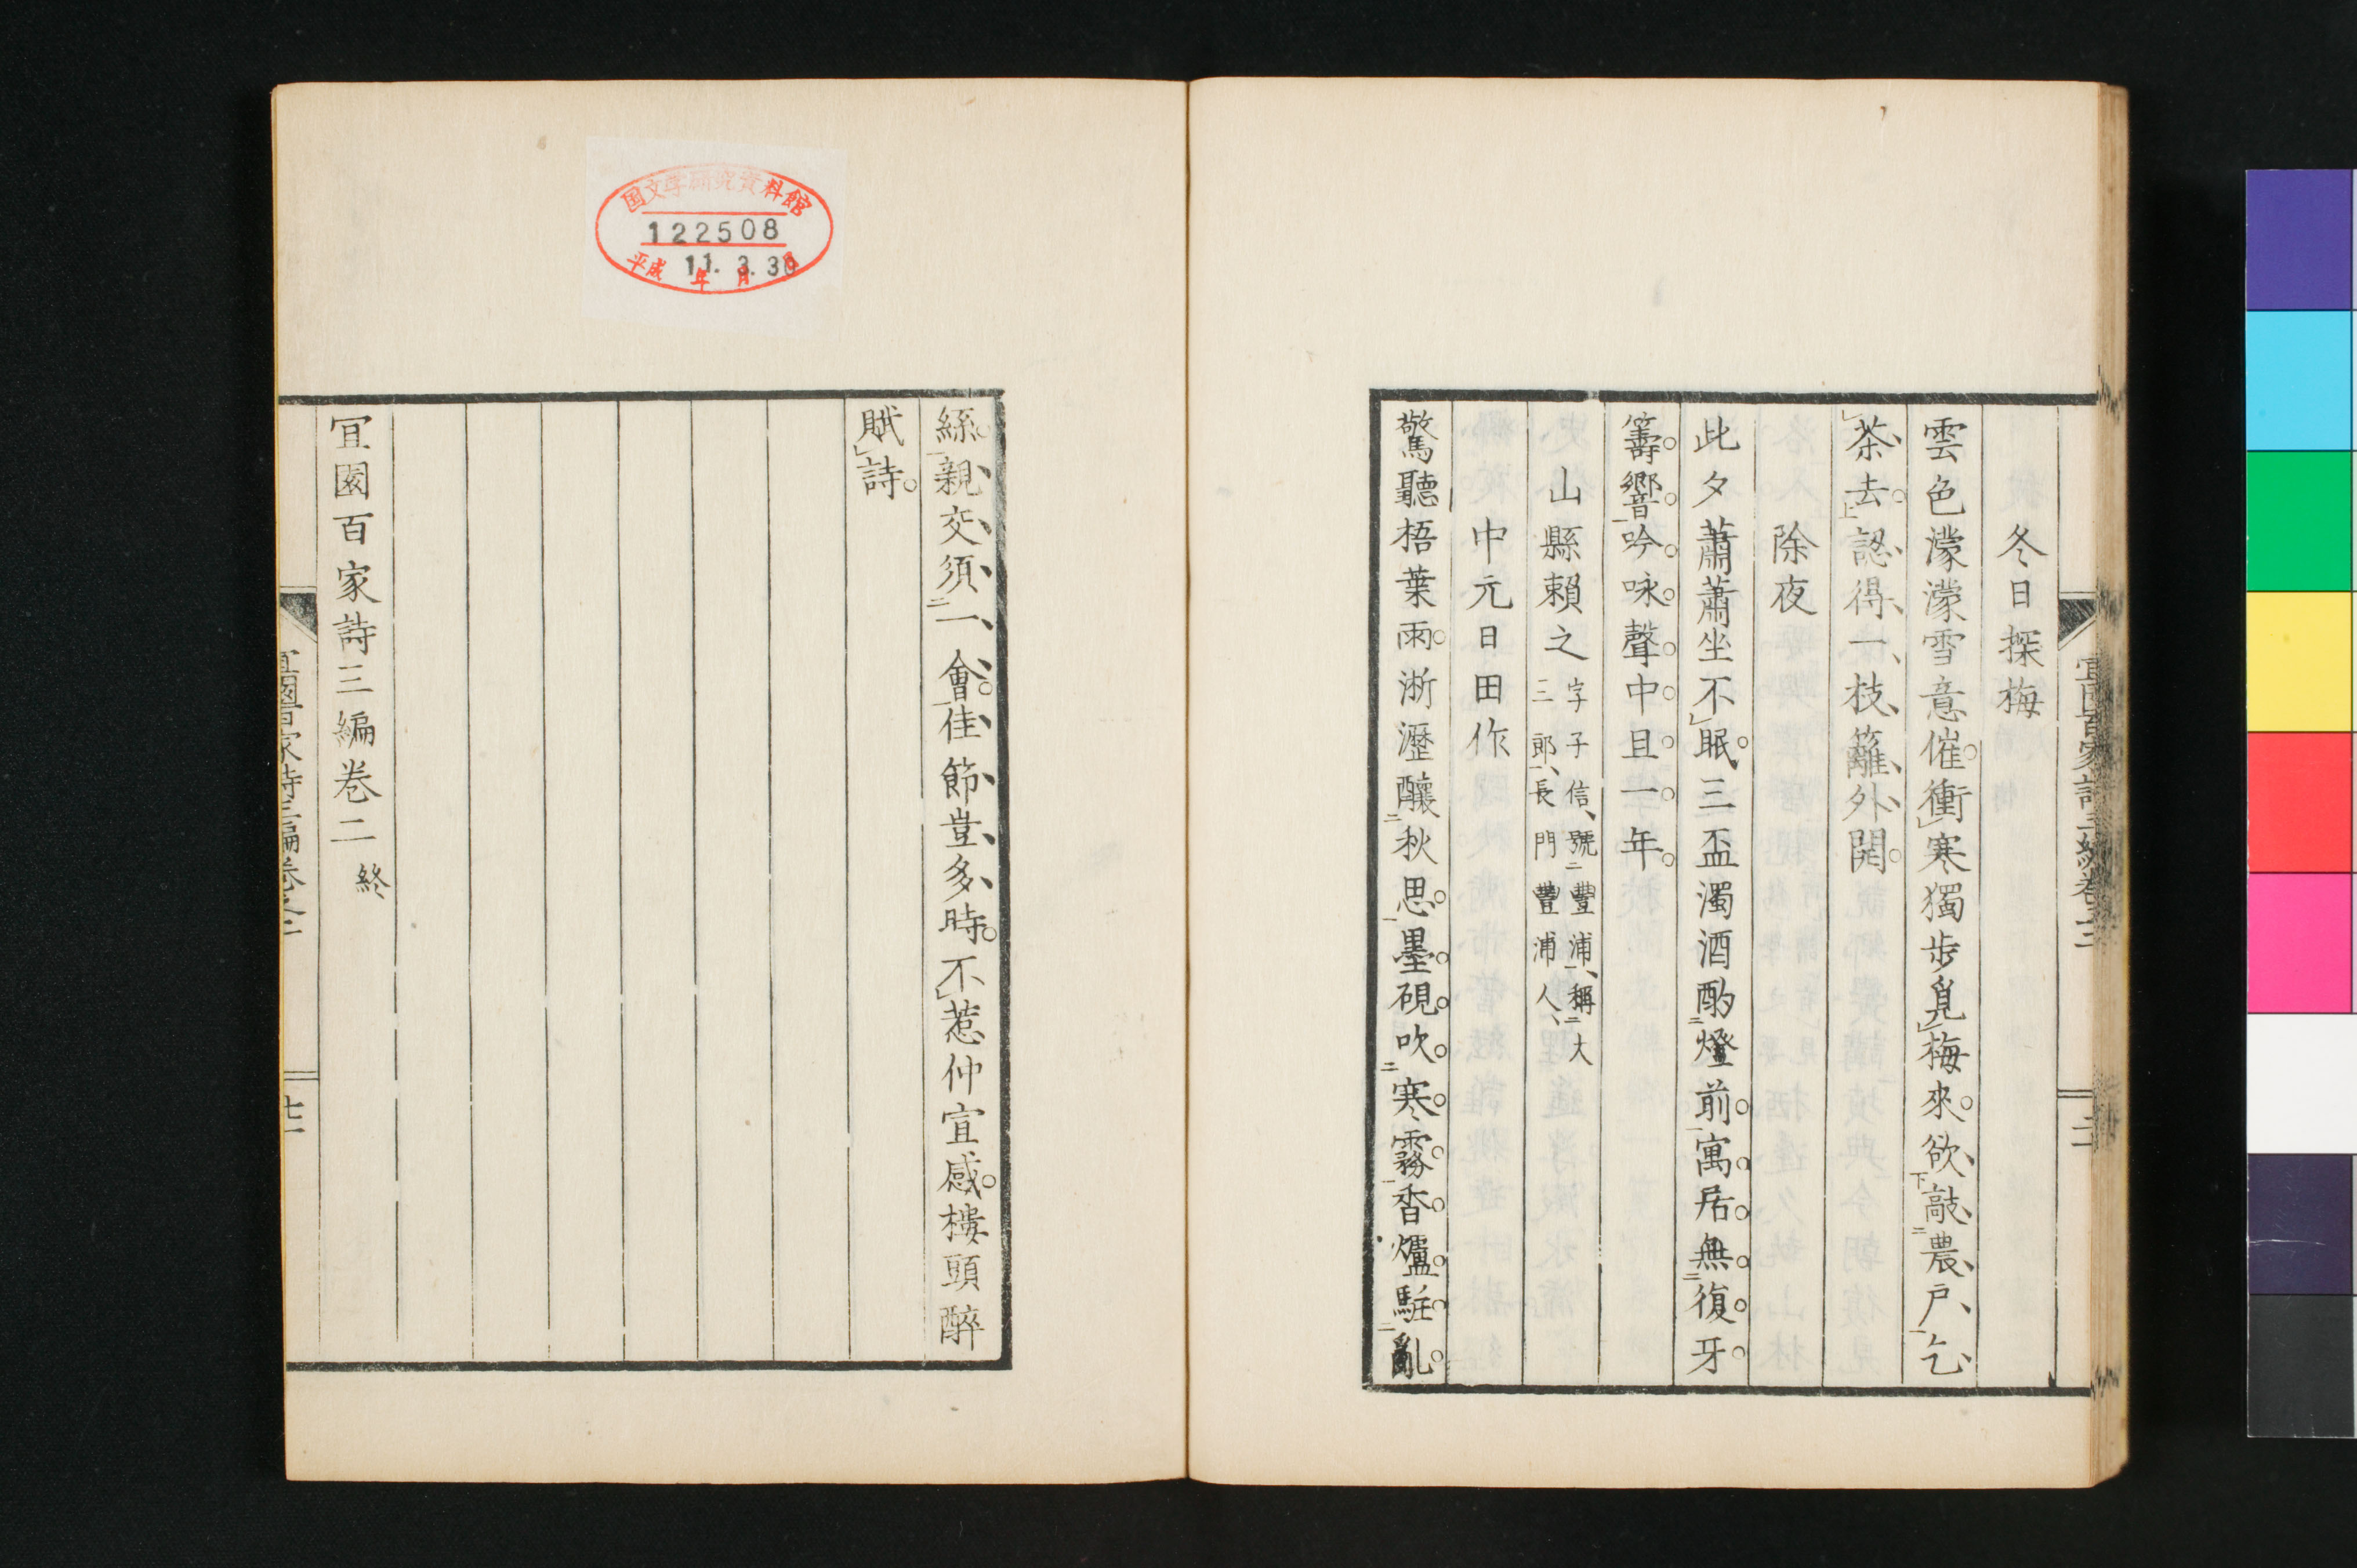 冬日探梅
雲色濛濛雪意催衝寒獨步覓梅來欲敲農戶乞
茶去認得一枝籬外開
除夜
此夕蕭蕭坐不眠三盃濁酒酌燈前寓居無復牙
籌響吟咏聲中且一年
山縣賴之 字子信、號豐浦、稱大
三郎、長門豐浦人、
中元日田作
驚聽梧葉雨淅瀝釀秋思墨硯吹寒霧香爐駐亂
絲親交須一會佳節豈多時不惹仲宣感樓頭醉
賦詩
宜園百家詩三編卷二 終
宜園百家詩三編卷之二
国文学研究資料館
122508
平成 11年 3月 30日